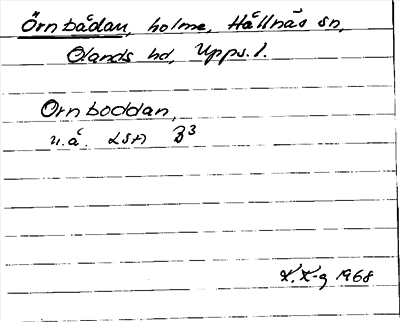 Örnbådan, holme, Hållnäs sn,
Olands hd, Upps. l.
Ornboddan,
u.å. LSA B³
X.X-g 1968